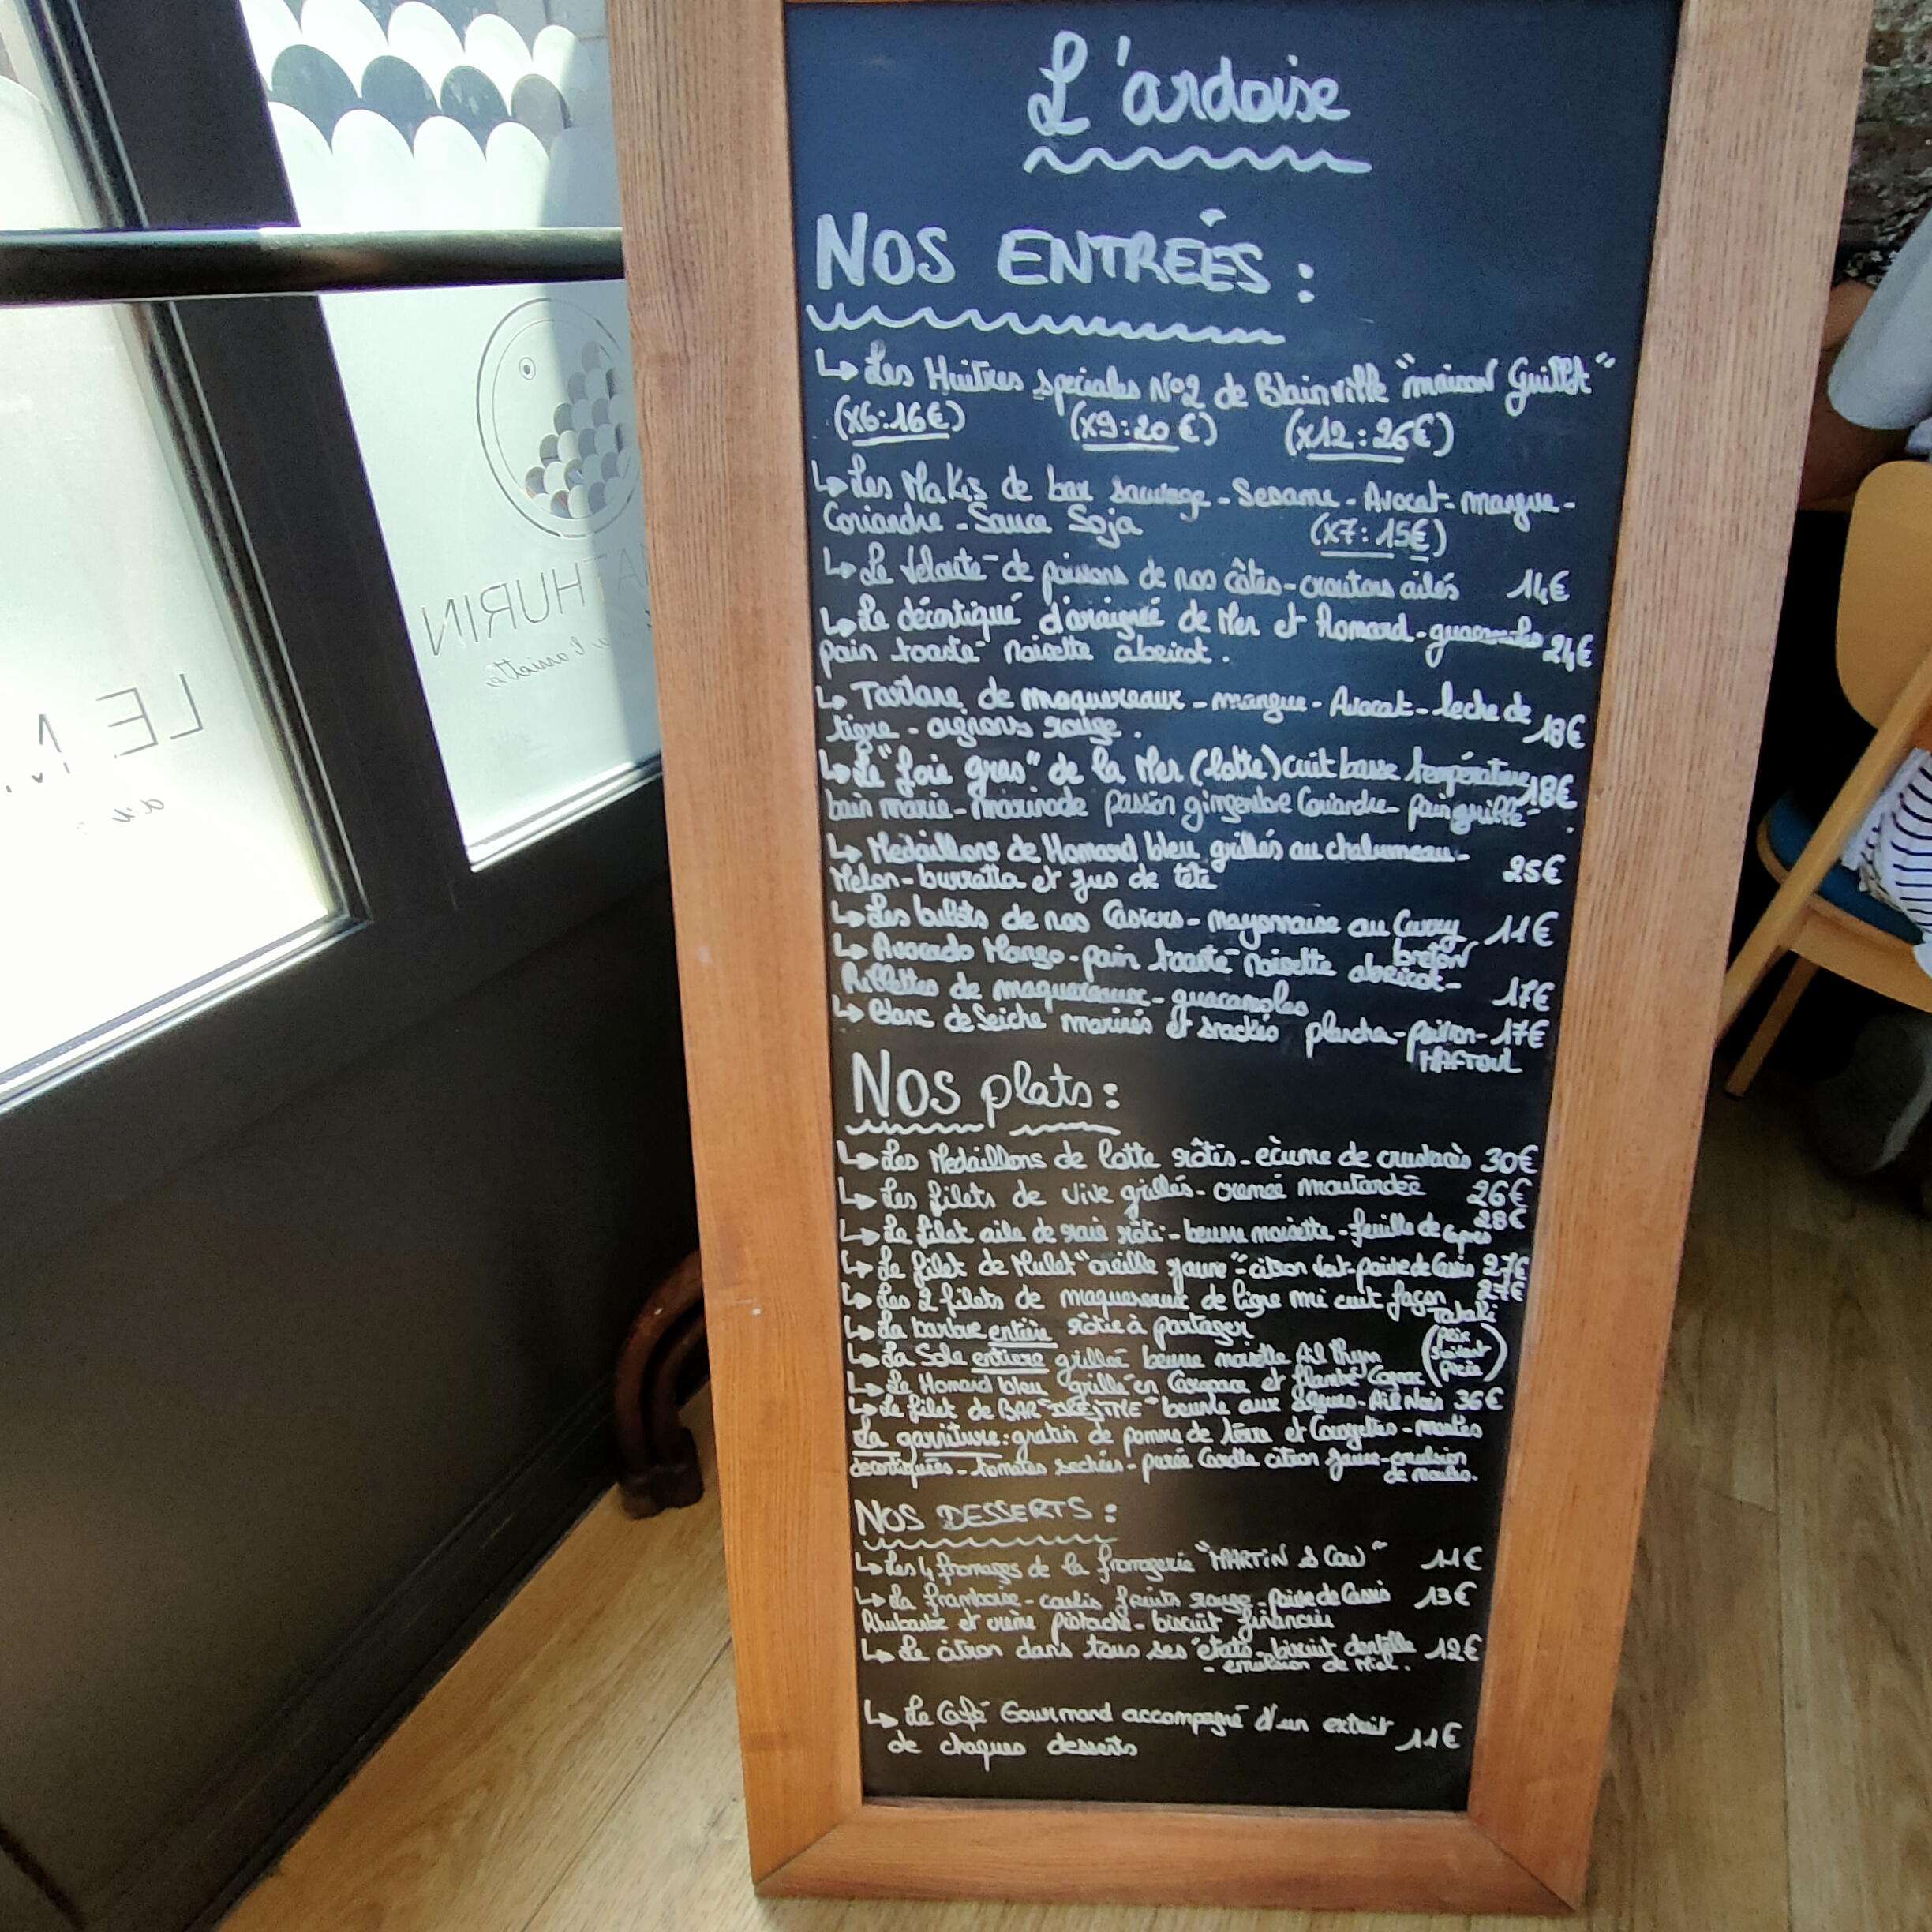 L'ardoise
NOS ENTRÉES :
↳ Les Huitres speciales N°2 de Blainville "maison Guillot"
(x6:16€) (x9:20€) (x12:26€)
↳ Les Makis de bar sauvage - Sesame - Avocat - mangue -
Coriandre - Sauce Soja (x7:15€)
↳ Le Velouté de poissons de nos côtes - croutons ailés 14€
↳ Le décortiqué d'araignée de Mer et Homard - guacamoles 24€
pain toasté noisette abricot.
↳ Tartare de maquereaux - mangue - Avocat - leche de
tigre - oignons rouge. 18€
↳ Le "foie gras" de la Mer (lotte) cuit basse température 18€
bain marie - marinade passion gingembre Coriandre - pain grillé
↳ Medaillons de Homard bleu grillés au chalumeau -
Melon - burratta et jus de tête 25€
↳ Les bulots de nos Casiers - mayonnaise au Curry 11€
breton
↳ Avocado Mango - pain toasté noisette abricot -
Rillettes de maquereaux - guacamoles 17€
↳ Blanc de Seiche marinés et snackés plancha - poivron - 17€
MAFTOUL
NOS plats :
↳ Les Medaillons de lotte rôtis - écume de crustacés 30€
↳ Les filets de vive grillés - cremée moutardée 26€
↳ Le filet aile de raie rôti - beurre noisette - feuille de capres 28€
↳ Le filet de Mulet "oreille jaune" - citron vert - poivre de Cassis 27€
↳ Les 2 filets de maquereaux de ligne mi cuit façon
Tataki
↳ La barbue entière rôtie à partager
↳ La Sole entiere grillée beurre noisette Ail thym
(Prix suivant pièce)
↳ Le Homard bleu grillé en Carapace et flambé Cognac
↳ Le filet de BAR beurre aux Algues - Ail Noir 36€
La garniture : gratin de pomme de terre et Courgettes - moules
decortiquées - tomates sechées - purée Carotte citron jaune - emulsion
de moules.
NOS DESSERTS :
↳ Les 4 fromages de la fromagerie "MARTIN & COW" 11€
↳ La framboise - coulis fruits rouge - poivre de Cassis 13€
Rhubarbe et crème pistache - biscuit financier
↳ Le citron dans tous ses états - biscuit dentelle 12€
- emulsion de Miel.
↳ Le Café Gourmand accompagné d'un extrait
de chaques desserts 11€
LE M
MATHURIN